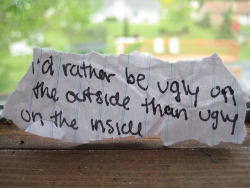 i'd rather be ugly on
the outside than ugly
on the inside